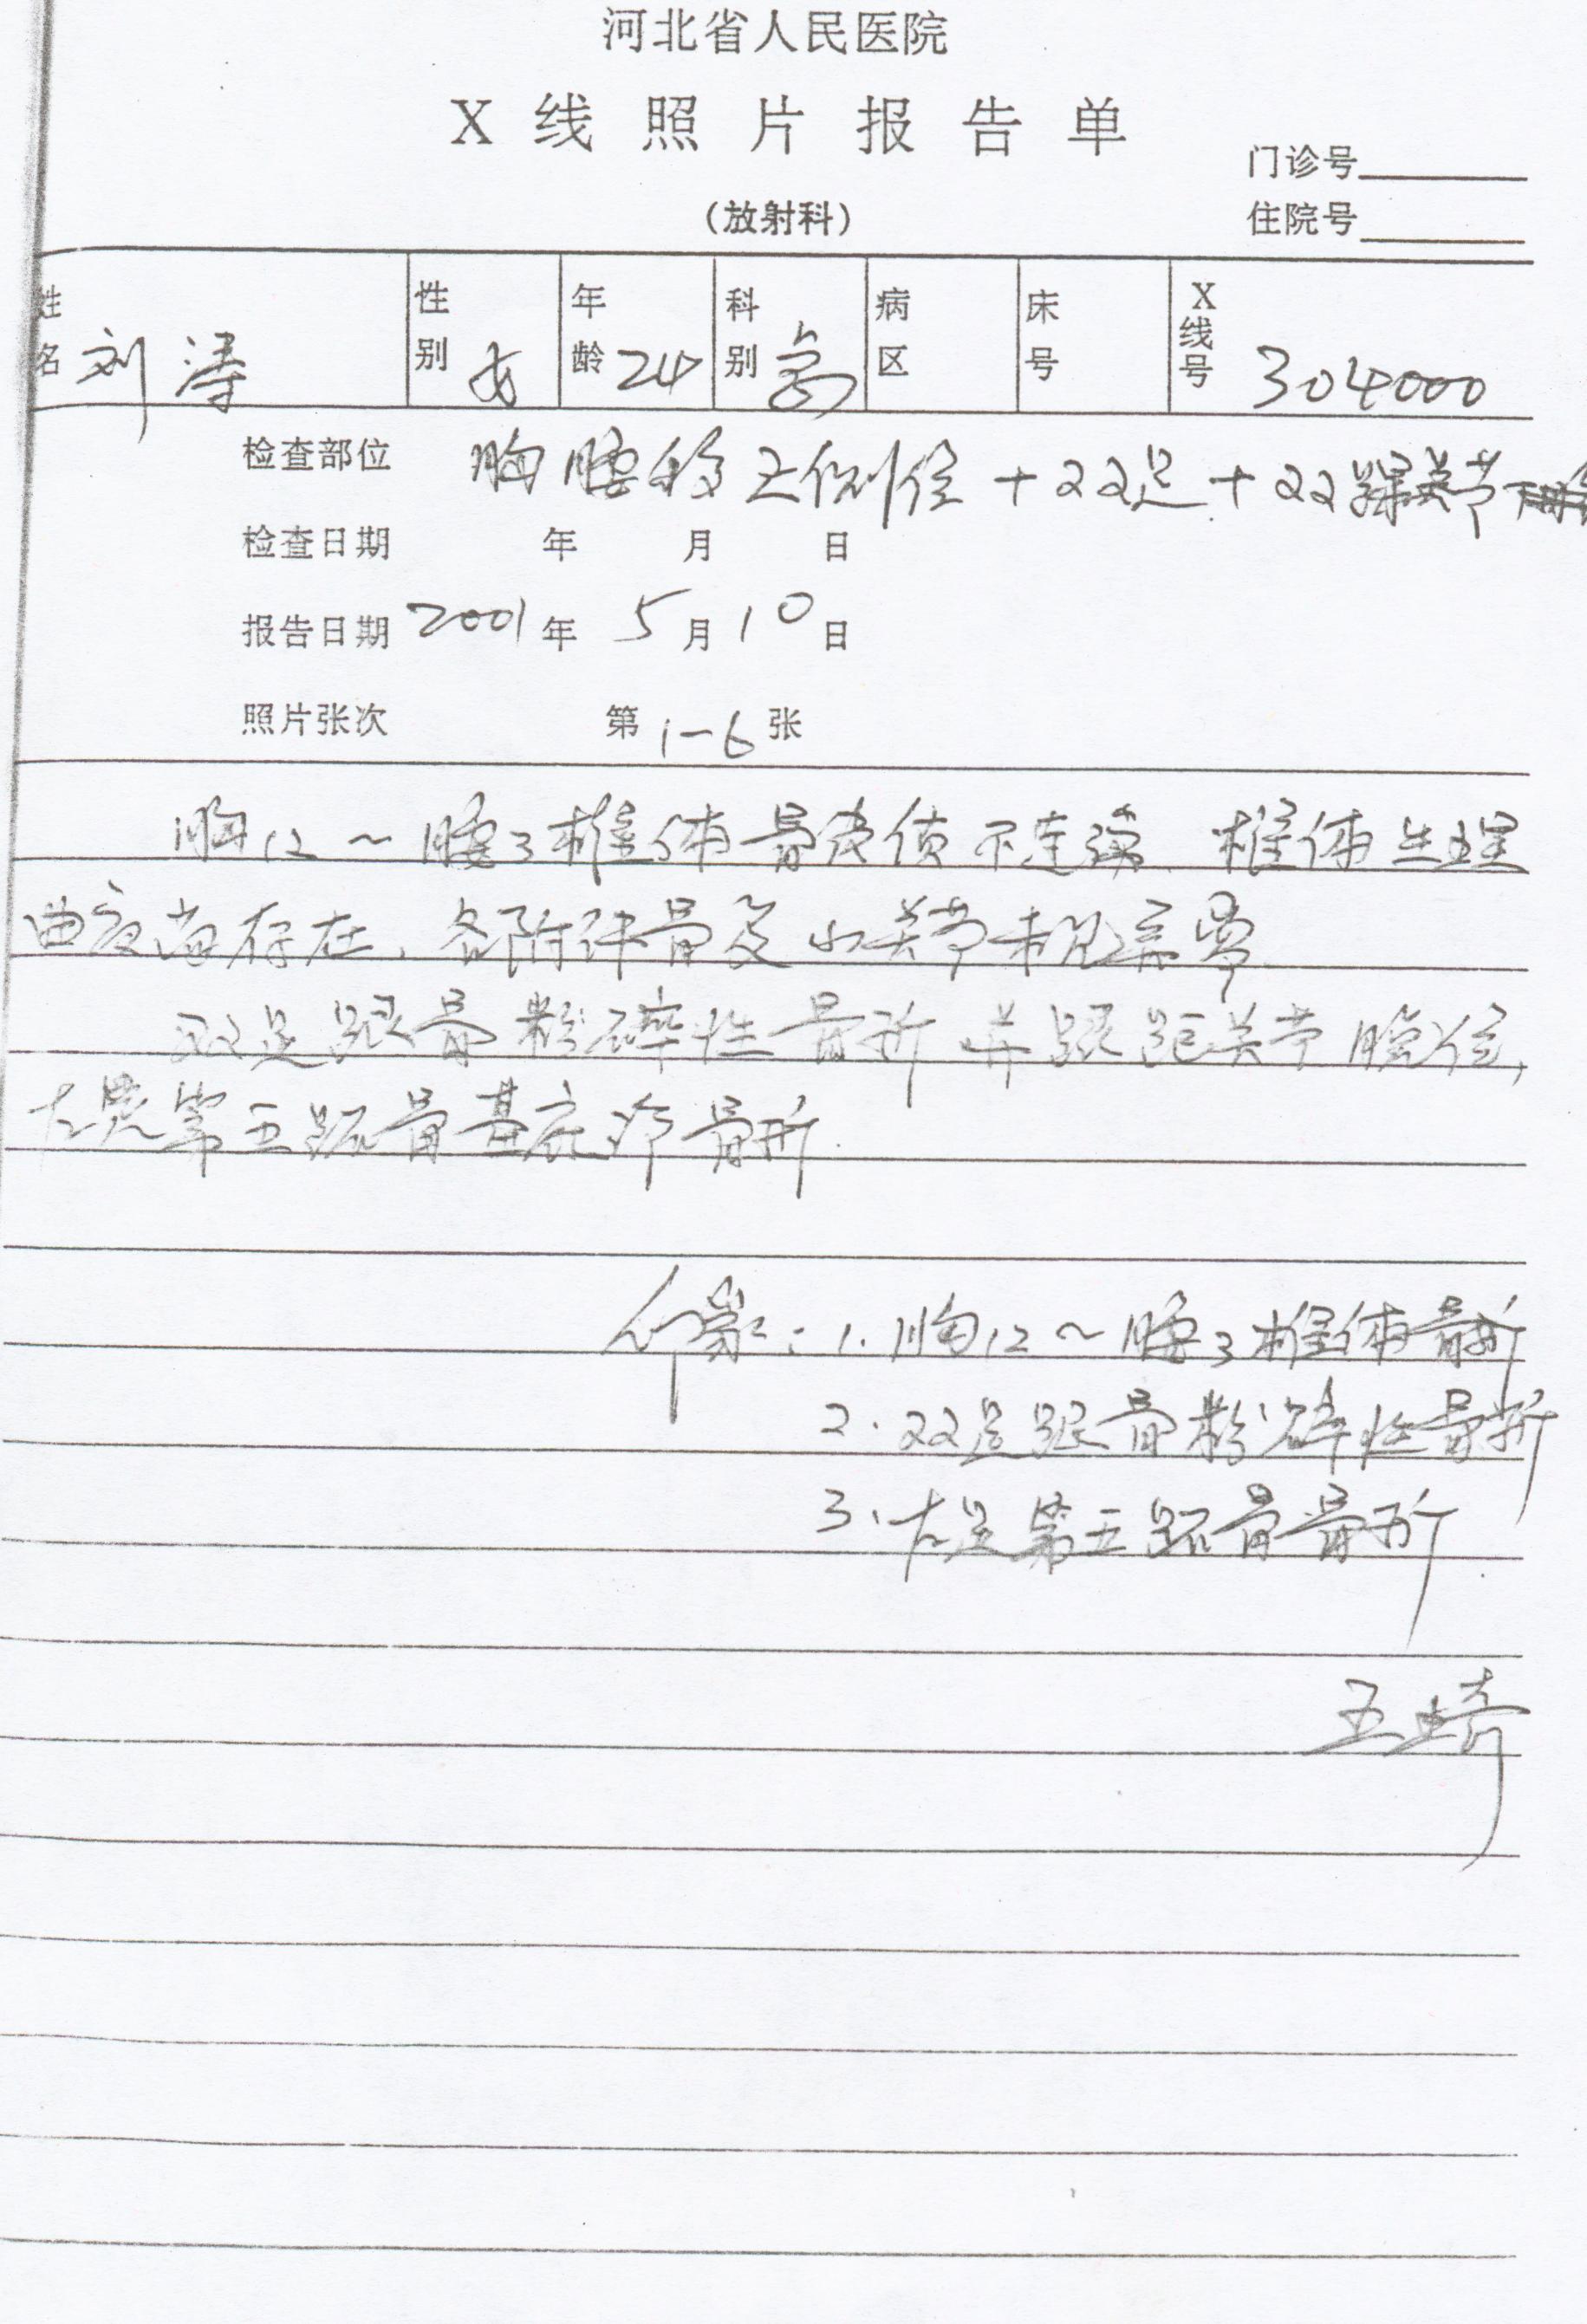 河北省人民医院
X线照片报告单
门诊号
(放射科)
住院号
姓名 刘涛 性别 女 年龄 24 科别 病区 床号 X线号 304000
检查部位 胸腰段正侧位+双足+双踝关节
检查日期 年 月 日
报告日期 2001年5月10日
照片张次 第1-6张
胸12~腰3椎体骨皮质不连续 椎体生理
曲度尚存在,各附件骨及小关节未见异常
双足跟骨粉碎性骨折并跟距关节脱位,
左足第五跖骨基底部骨折.
印象:1.胸12~腰3椎体骨折
2.双足跟骨粉碎性骨折
3.左足第五跖骨骨折